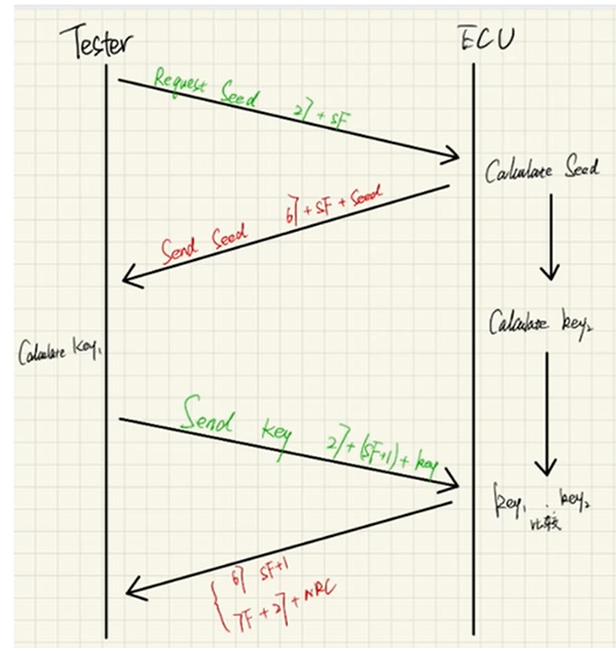 Tester
ECU
Request Seed 27 + SF
Calculate Seed
67 + SF + Seed
Send Seed
Calculate key₂
Calculate Key₁
Send key 27 + (SF+1) + key
key₁ key₂
比较
67 SF+1
7F + 27 + NRC